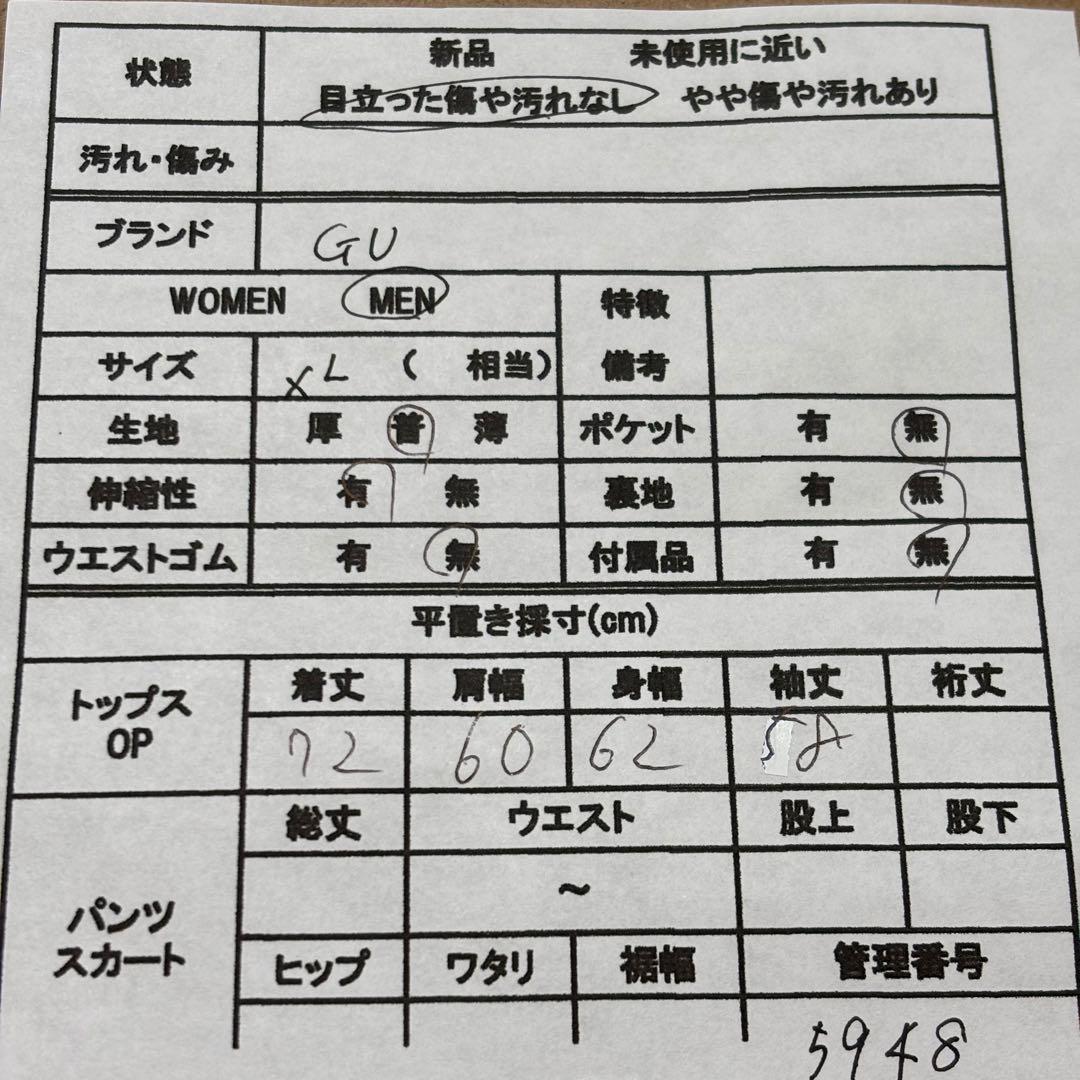 状態 新品 未使用に近い
目立った傷や汚れなし やや傷や汚れあり
汚れ・傷み
ブランド GU
WOMEN MEN 特徴
サイズ XL ( 相当) 備考
生地 厚 普 薄 ポケット 有 無
伸縮性 有 無 裏地 有 無
ウエストゴム 有 無 付属品 有 無
平置き採寸(cm)
トップス OP 着丈 肩幅 身幅 袖丈 裄丈
72 60 62 58
パンツ スカート 総丈 ウエスト 股上 股下
~
ヒップ ワタリ 裾幅 管理番号
5948